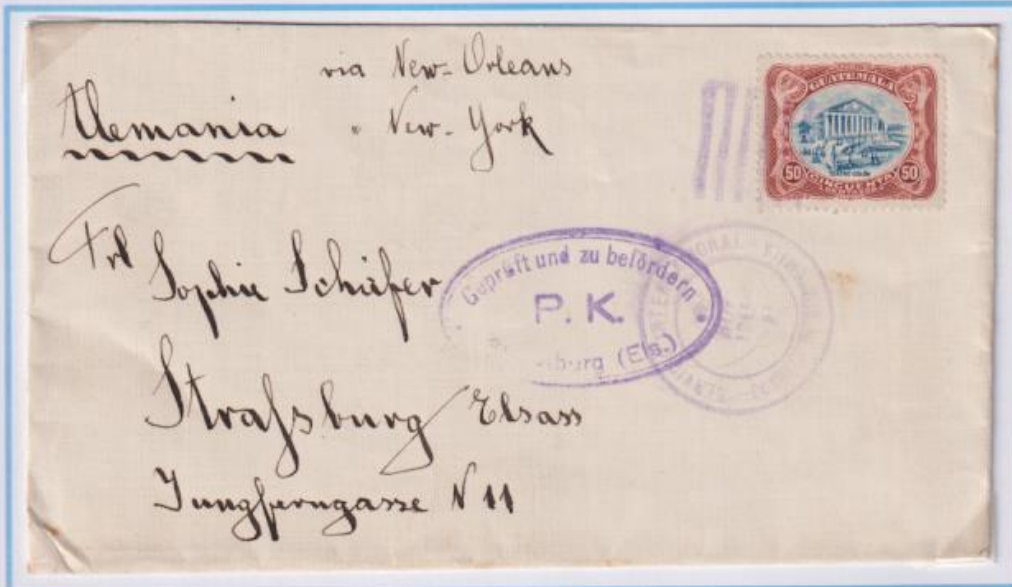 via New-Orleans
" New-York
Alemania
GUATEMALA
TEATRO COLON
50 CINCUENTA 50
Frl
Sophie Schäfer
Geprüft und zu befördern
P. K.
burg (Els.)
Straßsburg Elsass
Jungferngasse N 11